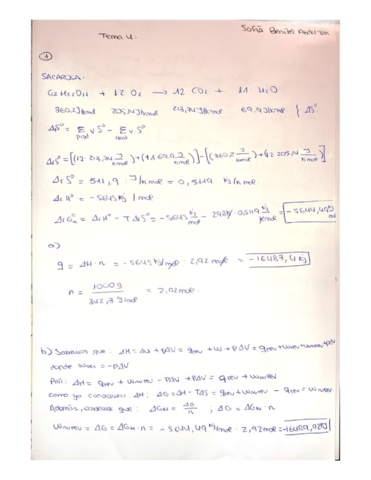 Tema 4.
Sofía Benítez
1
SACAROSA.
C12H22O11 + 12 O2 → 12 CO2 + 11 H2O
360.2 J/kmol 205.14 J/kmol 213.74 J/kmol 69.9 J/kmol | ΔS°
ΔS° = Σprod νS° - Σreac νS°
ΔrS° = [(12·213,74 J/Kmol)+(11·69.9 J/Kmol)]-[(360.2 J/Kmol)+(12·205.14 J/Kmol)]
ΔrS° = 511,9 J/Kmol = 0,5119 kJ/Kmol
ΔrH° = -5645 kJ/mol
ΔrG°m = ΔrH° - TΔrS° = -5645 kJ/mol - 298K·0.5119 kJ/Kmol =
a)
q = ΔH·n = -5645 kJ/mol · 2,92 mol = -16483,4 kJ
n = 1000g / 342,3 g/mol = 2,92 mol
b) Sabemos que: ΔH = ΔU + pΔV = qrev + w + PΔV = qrev +
donde wexp = -PΔV
Así: ΔH = qrev + wnoPV - PΔV + PΔV = qrev + wnoPV
como ya conocemos ΔH: ΔG = ΔH - TΔS = qrev + wnoPV - qrev = wnoPV
Además, sabemos que: ΔGm = ΔG/n ; ΔG = ΔGm·n
wnoPV = ΔG = ΔGm·n =